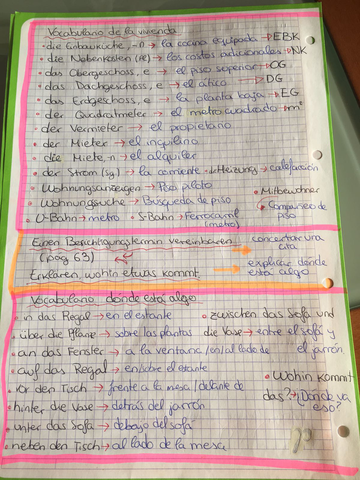 Vocabulario de la vivienda
• die Einbauküche, -n → la cocina equipada → EBK
• die Nebenkosten (pl) → los costos adicionales → NK
• das Obergeschoss, e → el piso superior → OG
• das Dachgeschoss, e → el ático → DG
• das Erdgeschoss, e → la planta baja → EG
• der Quadratmeter → el metro cuadrado → m²
• der Vermieter → el propietario
• der Mieter → el inquilino
• die Miete, n → el alquiler
• der Strom (sg.) → la corriente • Heizung → calefacción
• Wohnungsanzeigen → Piso piloto • Mitbewohner
• Wohnungsuche → Búsqueda de piso → Compañero de piso
• U-Bahn → metro • S-Bahn → Ferrocarril (metro)
Einen Besichtigungstermin vereinbaren → concertar una cita
(pág 63)
Erklären, wohin etwas kommt → explicar dónde está algo
Vocabulario dónde está algo
• in das Regal → en el estante • zwischen das Sofa und
• über die Pflanze → sobre las plantas die Vase → entre el sofá y
• an das Fenster → a la ventana / en / al lado de el jarrón
• auf das Regal → en/sobre el estante • Wohin kommt
• vor den Tisch → frente a la mesa / delante de das? → ¿Dónde va
• hinter die Vase → detrás del jarrón eso?
• unter das Sofa → debajo del sofá
• neben den Tisch → al lado de la mesa